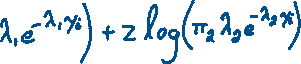 λ₁e^{-λ₁y_i}) + z log(π₂ λ₂e^{-λ₂y_i})